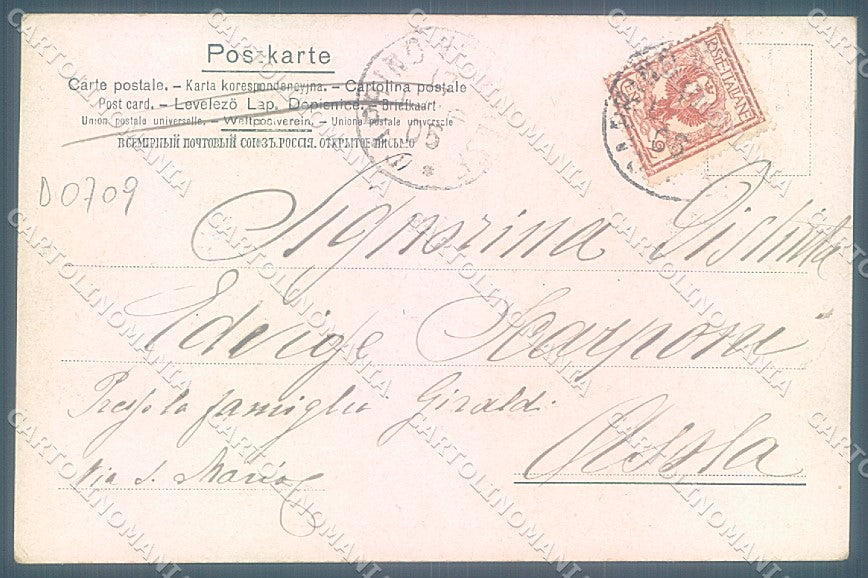 Postkarte
Carte postale. – Karta korespondencyjna. – Cartolina postale
Post card. – Levelező Lap. Dopisnice. – Briefkaart
Union postale universelle. – Weltpostverein. – Unione postale universale
ВСЕМІРНЫЙ ПОЧТОВЫЙ СОЮЗЪ. РОССІЯ. ОТКРЫТОЕ ПИСЬМО
POSTE ITALIANE
05
D0709
Signorina Distinta
Edvige Scarponi
Presso la famiglia Giraldi
Via S. Maria
CARTOLINOMANIA